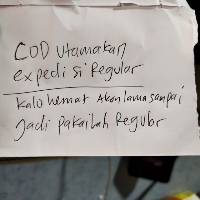 COD Utamakan
expedisi Regular
Kalo hemat Akan lama sampai
Jadi Pakailah Regular